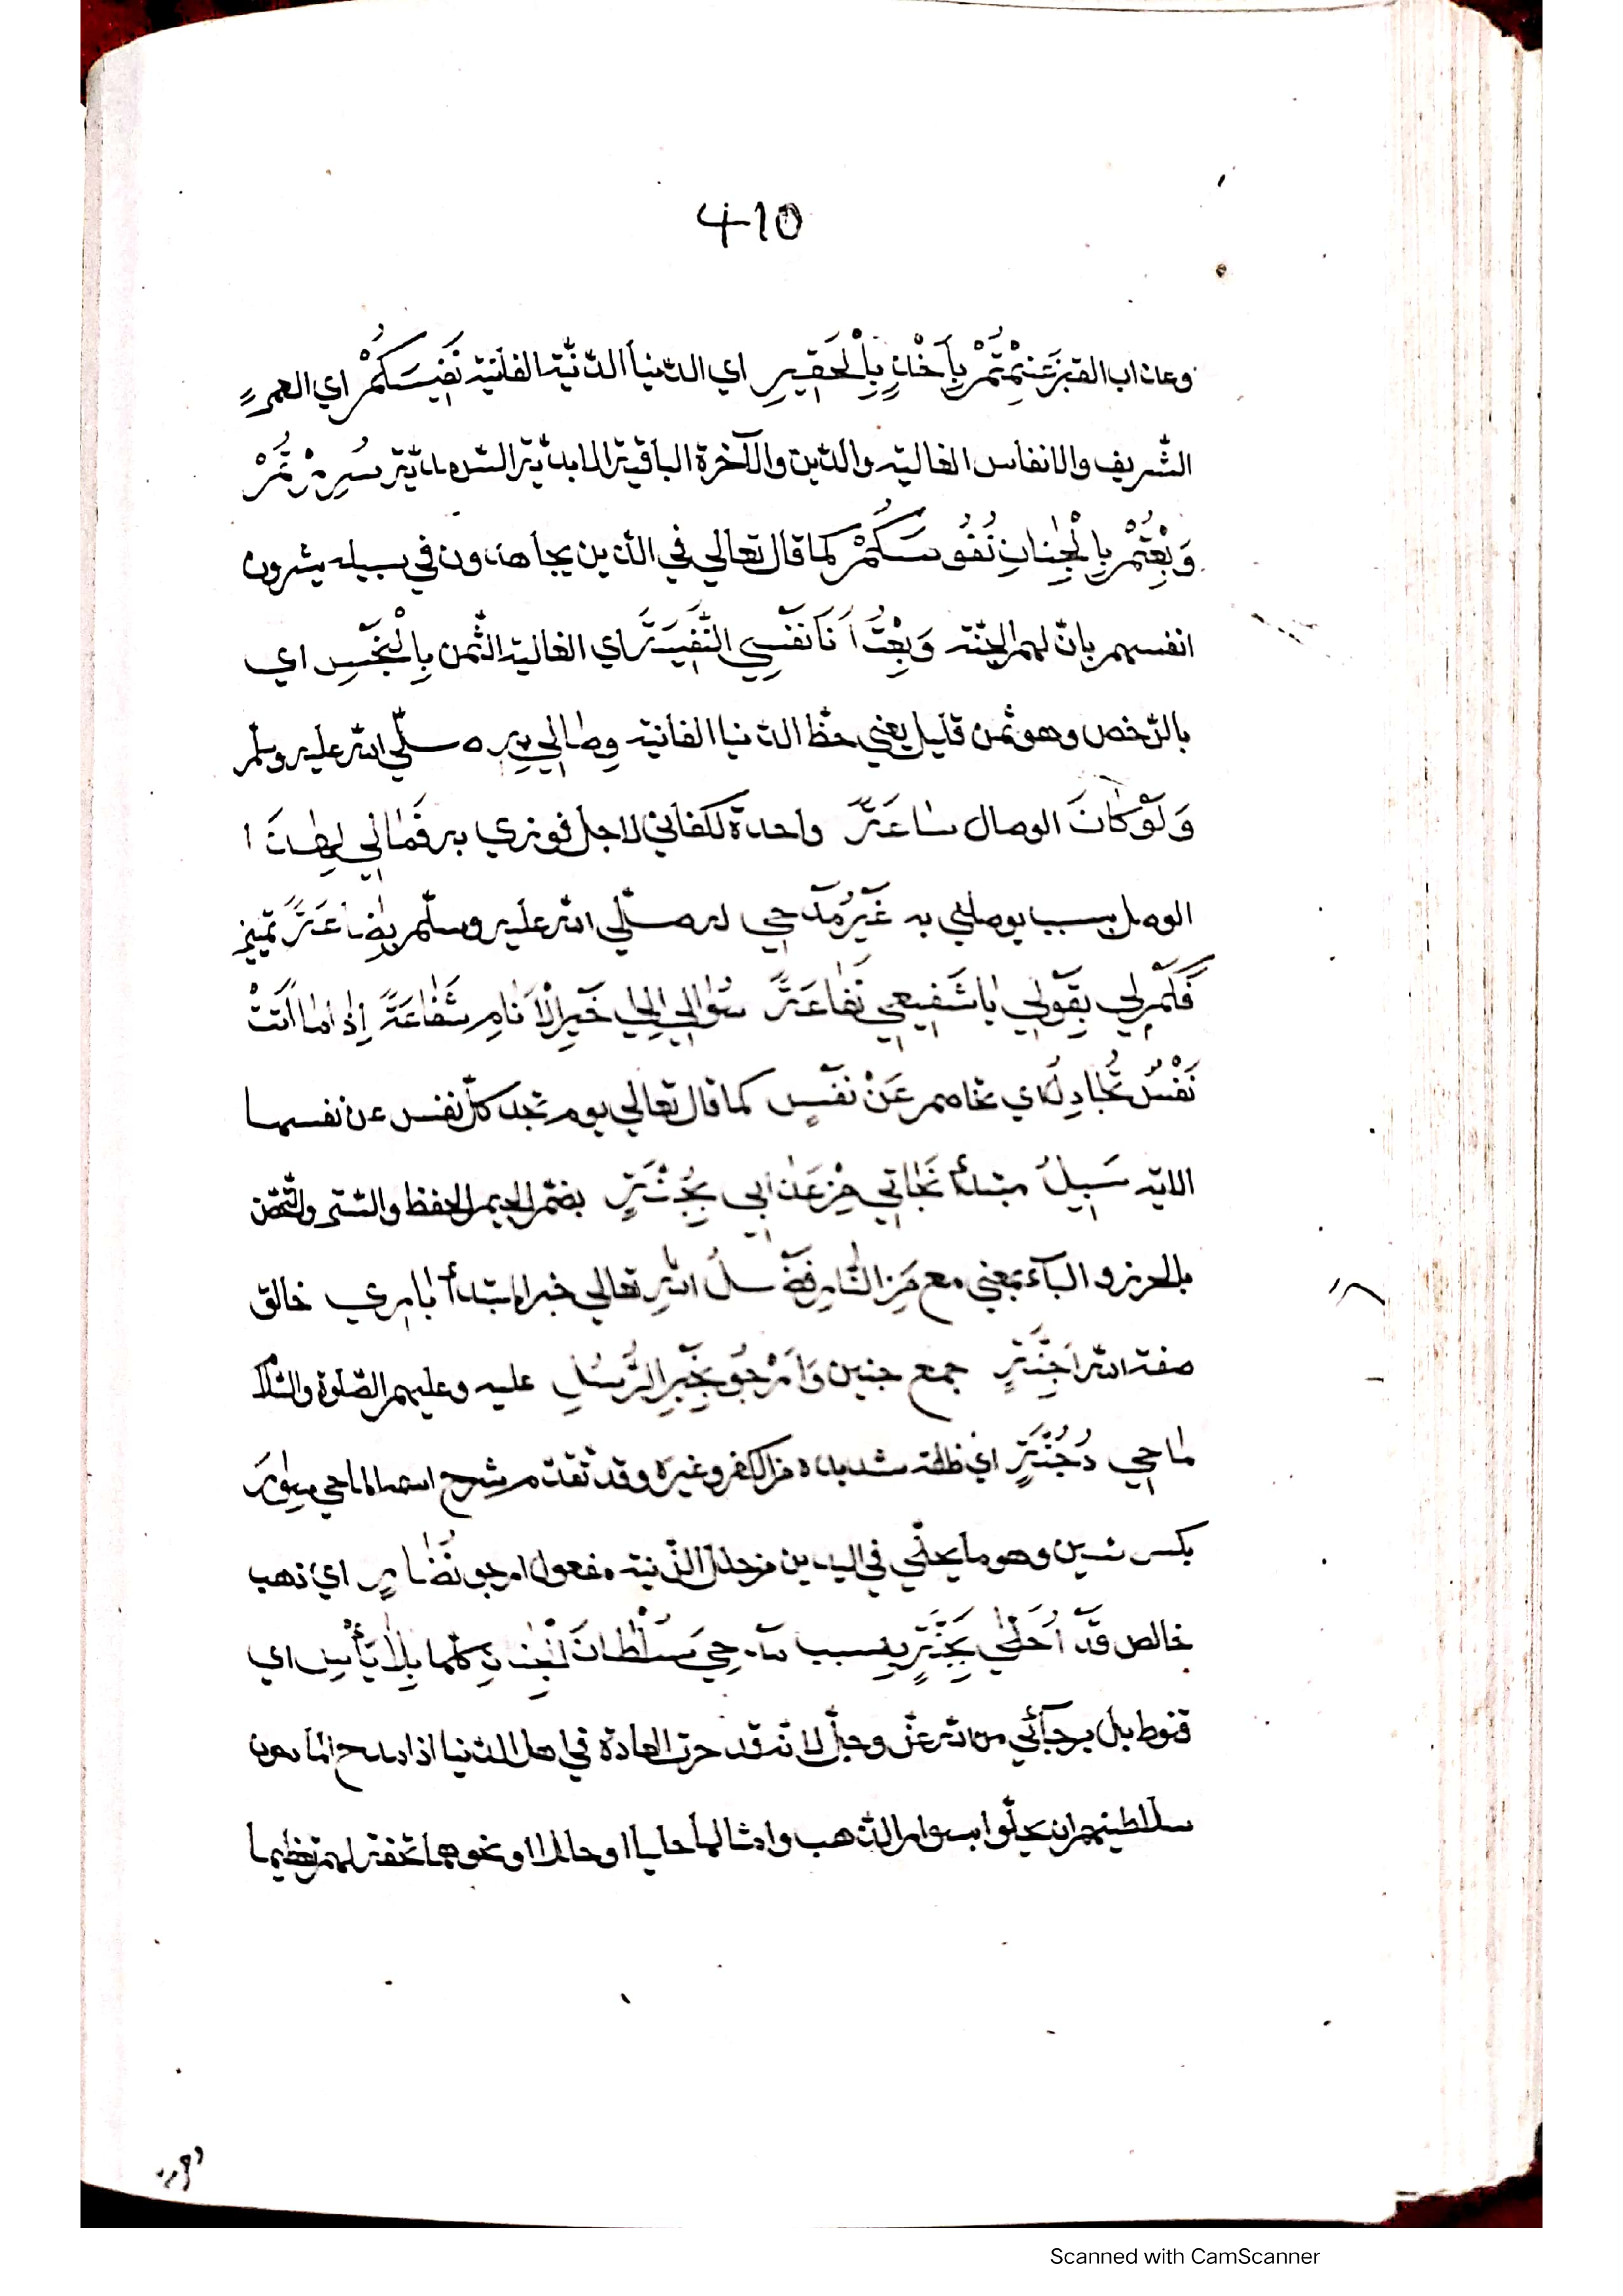 410
وعذاب القبر غَنِمْتُمْ بِأَخْذٍ بِالْحَقِيرِ اي الدّنيا الدّنيّة الفانية نَفِيسَكُمْ اي العمر
الشّريف والانفاس الغالية والدّين والآخرة الباقية الابديّة السّرمديّة سُرِرْتُمْ
وَبِعْتُمْ بِالْجِنَانِ نُفُوسَكُمْ كما قال تعالي في الّذين يجاهدون في سبيله يشرون
انفسهم بانّ لهم الجنّة وَبِعْتُ أَنَا نَفْسِي النَّفِيسَةَ اي الغالية الثّمن بِالْبَخْسِ اي
بالرّخص وهو ثمن قليل يعني حظّ الدّنيا الفانية وِصَالِي بِهِ صلّي الله عليه وسلّم
وَلَوْ كَانَ الوصال سَاعَةً واحدة لكفاني لاجل فوزي به فَمَالِي لِهٰذَا
الوصل بسبب يوصلني به غَيْرُ مَدْحِي له صلّي الله عليه وسلّم بِضَاعَةً تميز
فَكَمْ لِي بِقَوْلِي يَا شَفِيعِي نَفَاعَةً سُؤَالِي إِلٰي خَيْرِ الْأَنَامِ شَفَاعَةً إِذَا مَا أَتَتْ
نَفْسٌ تُجَادِلُ اي تخاصم عَنْ نَفْسٍ كما قال تعالي يوم تجد كلّ نفس عن نفسها
الاية سَبِيلُ مبتدأ نَجَاتِي مِنْ عَذَابِي بِجُنَّةٍ بضمّ الجيم الحفظ والستر والتّحصّن
بالحرز والبآء بمعني مع مِنَ النَّارِ فَضْلُ اللهِ تعالي خبر لمبتدأ بَارِي خالق
صفة الله أَجِنَّةٍ جمع جنين وَأَرْجُو بِخَيْرِ الرُّسُلِ عليه وعليهم الصّلوة والسّلا
مَاحِي دُجُنَّةٍ اي ظلمة شديدة من الكفر وغيره وقد تقدّم شرح اسمه الماحي سِوَارَ
بكسر سين وهو ما يحلّي في اليدين من حلل الزّينة مفعول ارجو نُضَارٍ اي ذهب
خالص قَدْ أُحَلّٰي بِجَنَّةٍ بسبب مَدْحِيَ سُلْطَانَ الْجِنَانِ كلّها بِلَا يَأْسٍ اي
قنوط بل برجآئي من الله عزّ وجلّ لانّه قد جرت العادة في اهل الدّنيا اذا مدح المادحون
سلاطينهم ان يحلّوا بسوار الذّهب وامثالها حليا او حللا او نحوهما تحفة لهم تعظيما
Scanned with CamScanner